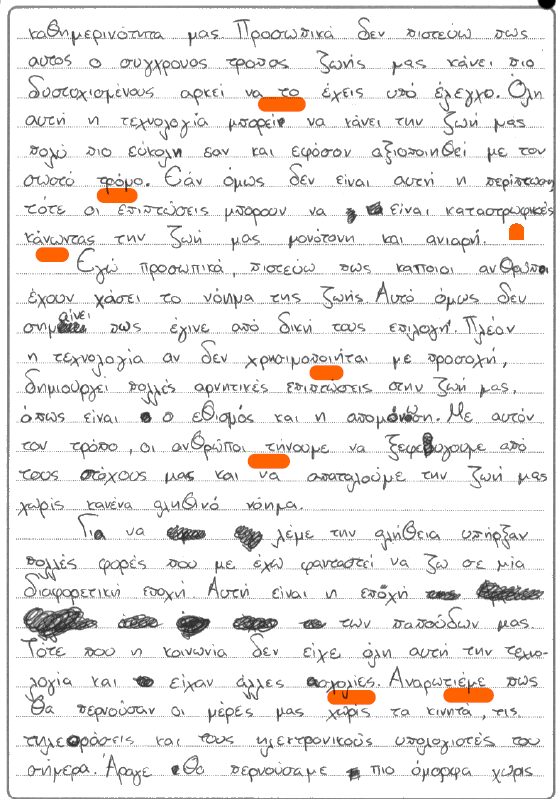 καθημερινότητα μας Προσωπικά δεν πιστεύω πως
αυτος ο συγχρονος τροπος ζωής μας κάνει πιο
δυστυχισμένους αρκεί να το έχεις υπό έλεγχο. Όλη
αυτή η τεχνολογία μπορεί να κάνει την ζωή μας
πολύ πιο εύκολη εαν και εφόσον αξιοποιηθεί με τον
σωστό τρόμο. Εάν όμως δεν είναι αυτή η περίπτωση
τότε οι επιπτώσεις μπορουν να είναι καταστρωφικές
κάνωντας την ζωή μας μονότονη και ανιαρή.
Εγώ προσωπικά, πιστεύω πως καποιοι ανθρωποι
έχουν χάσει το νόημα της ζωής. Αυτό όμως δεν
σημαίνει πως έγινε από δική τους επιλογή. Πλέον
η τεχνολογία αν δεν χρησιμοποιήται με προσοχή,
δημιουργεί πολλές αρνητικές επιπτώσεις στην ζωή μας,
όπως είναι ο εθισμός και η απομόνωση. Με αυτόν
τον τρόπο, οι ανθρωποι τήνουμε να ξεφεύγουμε από
τους στόχους μας και να σπαταλούμε την ζωή μας
χωρίς κανένα αληθινό νόημα.
Για να λέμε την αλήθεια υπήρξαν
πολλές φορές που με έχω φανταστεί να ζω σε μία
διαφορετική εποχή. Αυτή είναι η εποχή
των παπούδων μας.
Τότε που η κοινωνία δεν είχε όλη αυτή την τεχνο-
λογία και είχαν άλλες ασχολίες. Αναρωτιέμε πως
θα περνούσαν οι μέρες μας χωρίς τα κινητά, τις
τηλεοράσεις και τους ηλεκτρονικούς υπολογιστές του
σήμερα. Άραγε θα περνούσαμε πιο όμορφα χωρίς